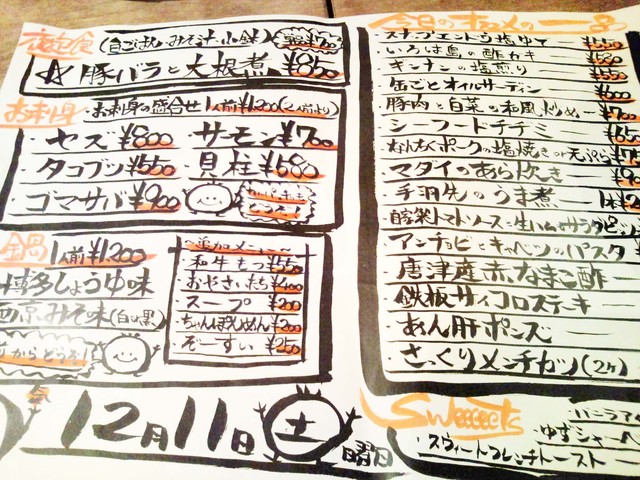 定食 (白ごはん・みそ汁・小鉢)
☆豚バラと大根煮 ¥850
お刺身 ・お刺身の盛合せ1人前¥1,200(2人前より)
・セズ¥800 ・サーモン¥700
・タコブツ¥550 ・貝柱¥580
・ゴマサバ¥900
鍋 1人前¥1,200
博多しょうゆ味
西京みそ味(白or黒)
からどうぞ!
~追加メニュー~
・和牛もつ¥550
・おやさいたち¥400
・スープ ¥200
・ちゃんぽんめん¥200
・ぞーすい ¥250
12月11日 土 曜日
今日のオススメの一品
・スナップエンドウ塩ゆで ¥550
・いろは島の酢カキ ¥580
・ギンナンの塩煎り ¥550
・缶ごとオイルサーディン ¥600
・豚肉と白菜の和風炒め ¥700
・シーフードチヂミ ¥65
・なんちくポークの塩焼きor天ぷら
・マダイのあら炊き
・手羽先のうま煮 1本
・自家製トマトソースと生ハムのサラダピッツ
・アンチョビとキャベツのパスタ
・唐津産赤なまこ酢
・鉄板サイコロステーキ
・あん肝ポンズ
・さっくりメンチカツ(2ケ)
Sweeeeets
・バニラア
・ゆずシャーベ
・スウィートフレンチトースト